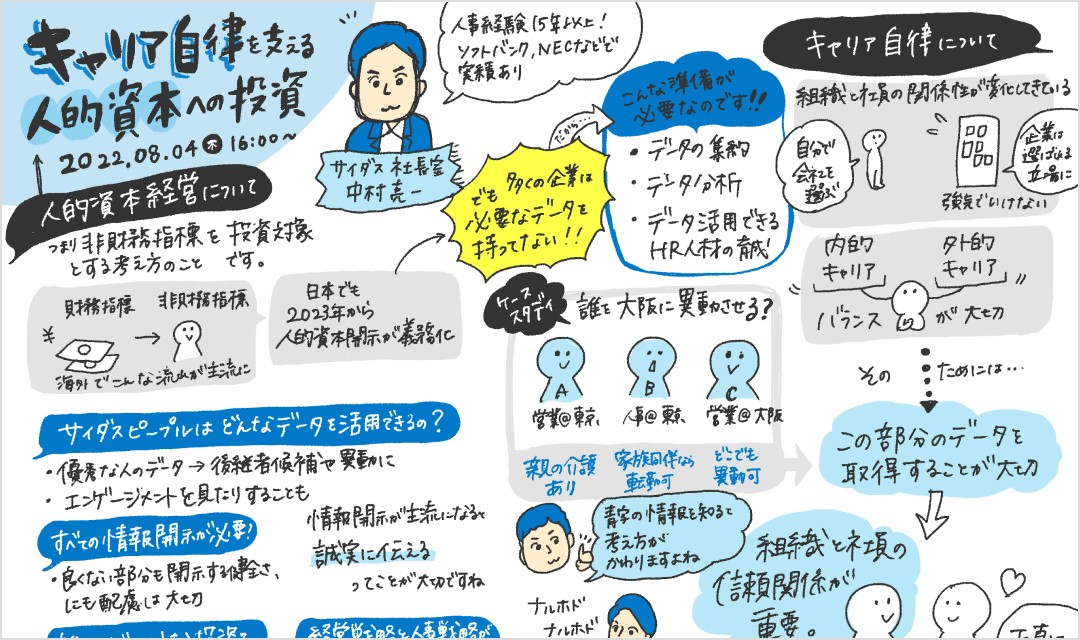 キャリア自律を支える
人的資本への投資
2022.08.04 木 16:00~
サイダス 社長室
中村亮一
人事経験15年以上!
ソフトバンク、NECなどで
実績あり
人的資本経営について
つまり非財務指標を投資対象
とする考え方のこと です。
財務指標 → 非財務指標
¥
海外でこんな流れが主流に
日本でも
2023年から
人的資本開示が義務化
でも 多くの企業は
必要なデータを
持ってない!!
だから…
こんな準備が
必要なのです!!
・データの集約
・データ分析
・データ活用できる
HR人材の育成
キャリア自律について
組織と社員の関係性が変化してきている
自分で
会社を
選ぶ
企業は
選ばれる
立場に
強気でいけない
内的
キャリア
外的
キャリア
バランス が大切
その ためには…
この部分のデータを
取得することが大切
ケース
スタディ
誰を大阪に異動させる?
A
B
C
営業@東京
人事@東京
営業@大阪
親の介護
あり
家族同伴なら
転勤可
どこでも
異動可
青字の情報を知ると
考え方が
かわりますよね
ナルホド
ナルホド
組織と社員の
信頼関係が
重要。
サイダスピープルは どんなデータを活用できるの?
・優秀な人のデータ → 後継者候補や異動に
・エンゲージメントを見たりすることも
すべての情報開示が必要!
・良くない部分も開示する健全さ、
にも配慮は大切
情報開示が主流になると
誠実に伝える
ってことが大切ですね
経営戦略と人事戦略が